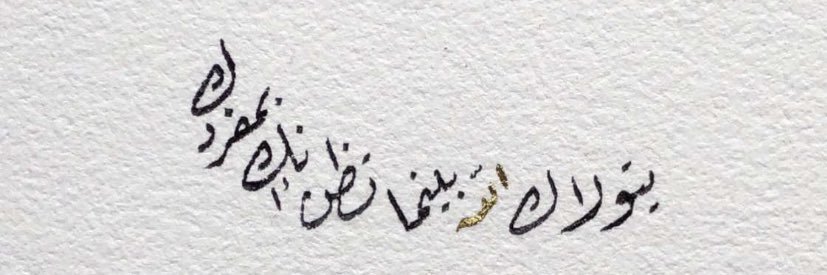 يتولاك الله بينما تظن إنك بمفردك